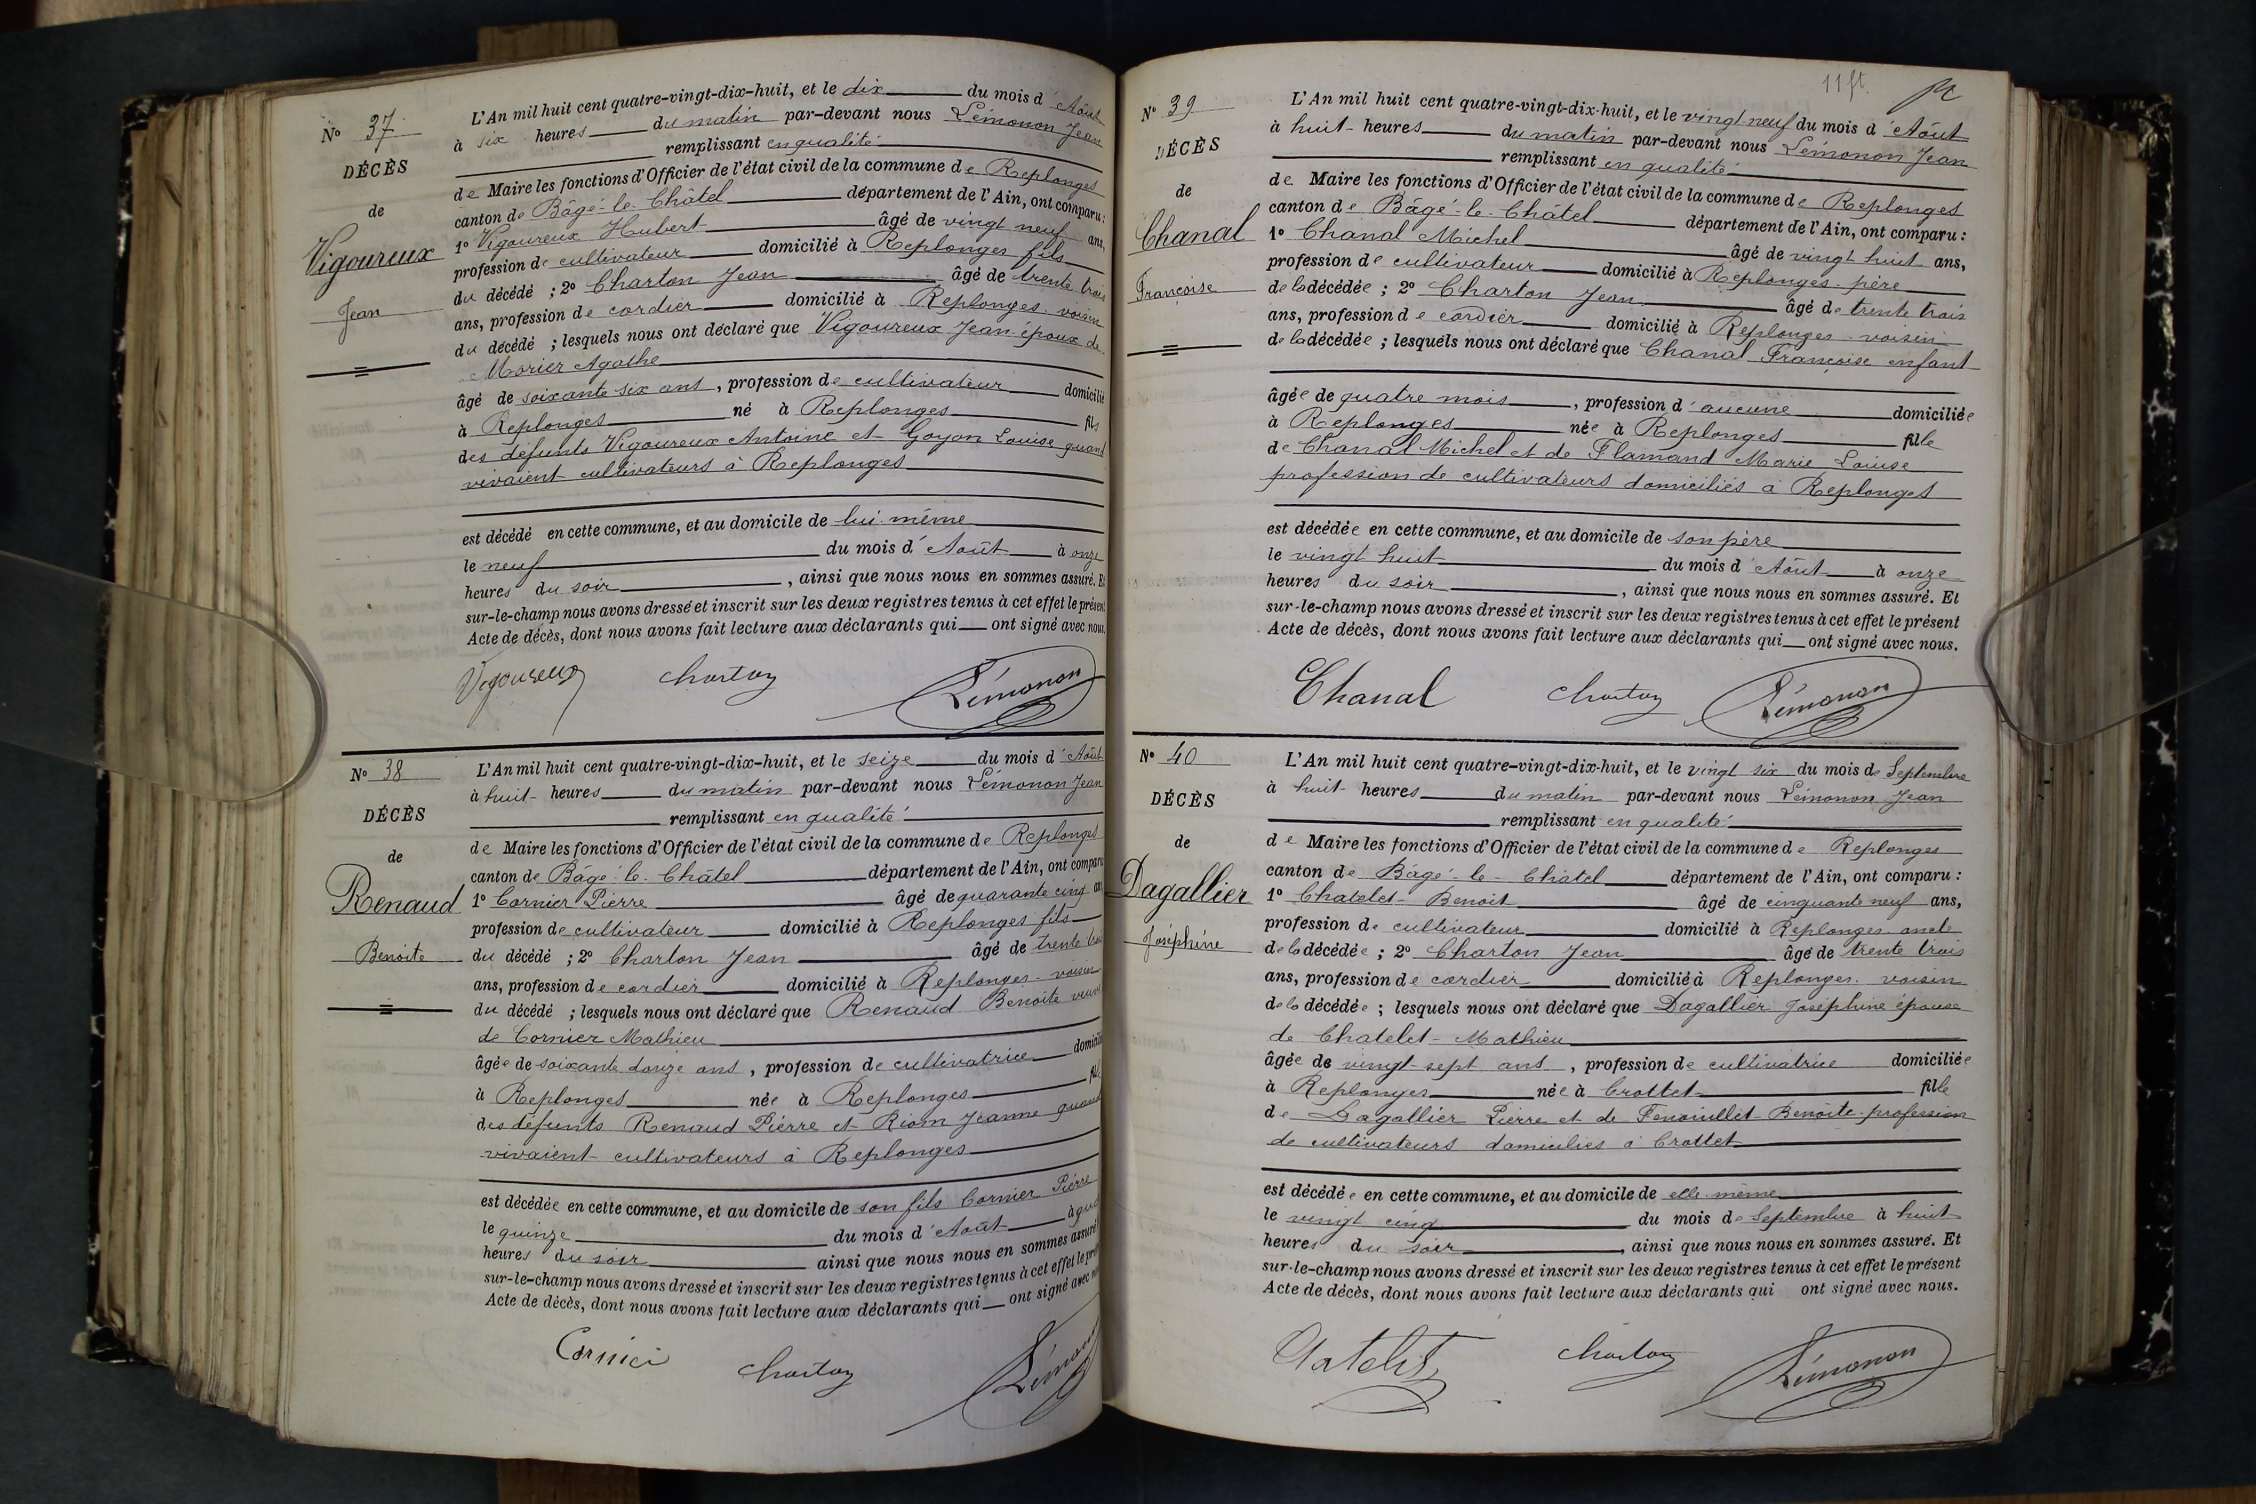 N° 37
DÉCÈS
de
Vigoureux
Jean
L'An mil huit cent quatre-vingt-dix-huit, et le dix du mois d'Août
à six heures du matin par-devant nous Lémonon Jean
remplissant en qualité
de Maire les fonctions d'Officier de l'état civil de la commune de Replonges
canton de Bâgé-le-Châtel département de l'Ain, ont comparu :
1° Vigoureux Hubert âgé de vingt neuf ans,
profession de cultivateur domicilié à Replonges fils
du décédé ; 2° Charton Jean âgé de trente trois
ans, profession de cordier domicilié à Replonges voisin
du décédé ; lesquels nous ont déclaré que Vigoureux Jean époux de
Morier Agathe
âgé de soixante six ans, profession de cultivateur domicilié
à Replonges né à Replonges fils
des défunts Vigoureux Antoine et Goyon Louise quand
vivaient cultivateurs à Replonges
est décédé en cette commune, et au domicile de lui-même
le neuf du mois d'Août à onze
heures du soir, ainsi que nous nous en sommes assuré. Et
sur-le-champ nous avons dressé et inscrit sur les deux registres tenus à cet effet le présent
Acte de décès, dont nous avons fait lecture aux déclarants qui ont signé avec nous.
Vigoureux Charton Lémonon
N° 38
DÉCÈS
de
Renaud
Benoite
L'An mil huit cent quatre-vingt-dix-huit, et le seize du mois d'Août
à huit heures du matin par-devant nous Lémonon Jean
remplissant en qualité
de Maire les fonctions d'Officier de l'état civil de la commune de Replonges
canton de Bâgé-le-Châtel département de l'Ain, ont comparu
1° Cornier Pierre âgé de quarante cinq ans
profession de cultivateur domicilié à Replonges fils
du décédé ; 2° Charton Jean âgé de trente trois
ans, profession de cordier domicilié à Replonges voisin
du décédé ; lesquels nous ont déclaré que Renaud Benoite veuve
de Cornier Mathieu
âgée de soixante douze ans, profession de cultivatrice domiciliée
à Replonges née à Replonges fille
des défunts Renaud Pierre et Riom Jeanne quand
vivaient cultivateurs à Replonges
est décédée en cette commune, et au domicile de son fils Cornier Pierre
le quinze du mois d'Août à
heures du soir ainsi que nous nous en sommes assuré
sur-le-champ nous avons dressé et inscrit sur les deux registres tenus à cet effet le présent
Acte de décès, dont nous avons fait lecture aux déclarants qui ont signé avec nous
Cornier Charton Lémonon
11 ft
N° 39
DÉCÈS
de
Chanal
Françoise
L'An mil huit cent quatre-vingt-dix-huit, et le vingt neuf du mois d'Août
à huit heures du matin par-devant nous Lémonon Jean
remplissant en qualité
de Maire les fonctions d'Officier de l'état civil de la commune de Replonges
canton de Bâgé-le-Châtel département de l'Ain, ont comparu :
1° Chanal Michel âgé de vingt huit ans,
profession de cultivateur domicilié à Replonges père
de la décédée ; 2° Charton Jean âgé de trente trois
ans, profession de cordier domicilié à Replonges voisin
de la décédée ; lesquels nous ont déclaré que Chanal Françoise enfant
âgée de quatre mois, profession d'aucune domiciliée
à Replonges née à Replonges fille
de Chanal Michel et de Flamand Marie Louise
profession de cultivateurs domiciliés à Replonges
est décédée en cette commune, et au domicile de son père
le vingt huit du mois d'Août à onze
heures du soir, ainsi que nous nous en sommes assuré. Et
sur-le-champ nous avons dressé et inscrit sur les deux registres tenus à cet effet le présent
Acte de décès, dont nous avons fait lecture aux déclarants qui ont signé avec nous.
Chanal Charton Lémonon
N° 40
DÉCÈS
de
Dagallier
Joséphine
L'An mil huit cent quatre-vingt-dix-huit, et le vingt six du mois de Septembre
à huit heures du matin par-devant nous Lémonon Jean
remplissant en qualité
de Maire les fonctions d'Officier de l'état civil de la commune de Replonges
canton de Bâgé-le-Châtel département de l'Ain, ont comparu :
1° Chatelet Benoit âgé de cinquante neuf ans,
profession de cultivateur domicilié à Replonges oncle
de la décédée ; 2° Charton Jean âgé de trente trois
ans, profession de cordier domicilié à Replonges voisin
de la décédée ; lesquels nous ont déclaré que Dagallier Joséphine épouse
de Chatelet Mathieu
âgée de vingt sept ans, profession de cultivatrice domiciliée
à Replonges née à Crottet fille
de Dagallier Pierre et de Fenouillet Benoite profession
de cultivateurs domiciliés à Crottet
est décédée en cette commune, et au domicile de elle même
le vingt cinq du mois de Septembre à huit
heures du soir, ainsi que nous nous en sommes assuré. Et
sur-le-champ nous avons dressé et inscrit sur les deux registres tenus à cet effet le présent
Acte de décès, dont nous avons fait lecture aux déclarants qui ont signé avec nous.
Chatelet Charton Lémonon